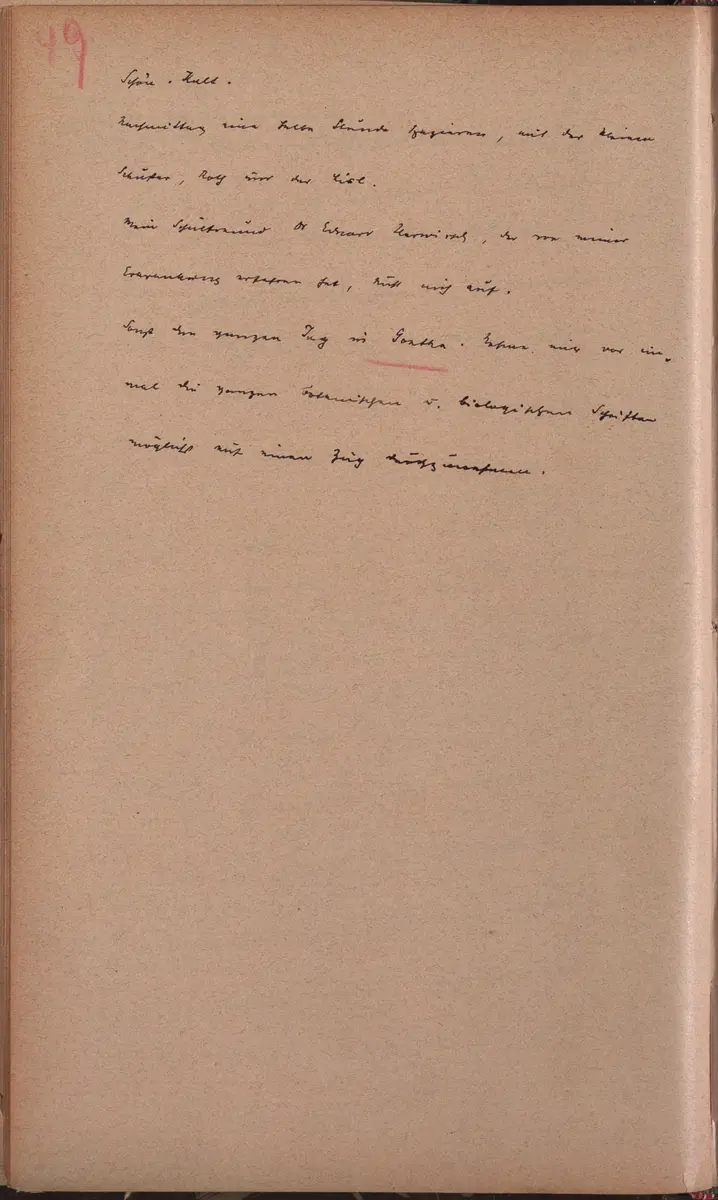 49
Schön. Kalt.
Nachmittag eine halbe Stunde spazieren, mit der kleinen
Schäfer, Rolf und der Lisl.
Mein Schulfreund Dr Eduard, der von meiner
Erkrankung erfahren hat, sucht mich auf.
Sonst den ganzen Tag in Goethe. Nehme mir vor ein-
mal die ganzen botanischen u. biologischen Schriften
möglichst auf einen Zug durchzunehmen.